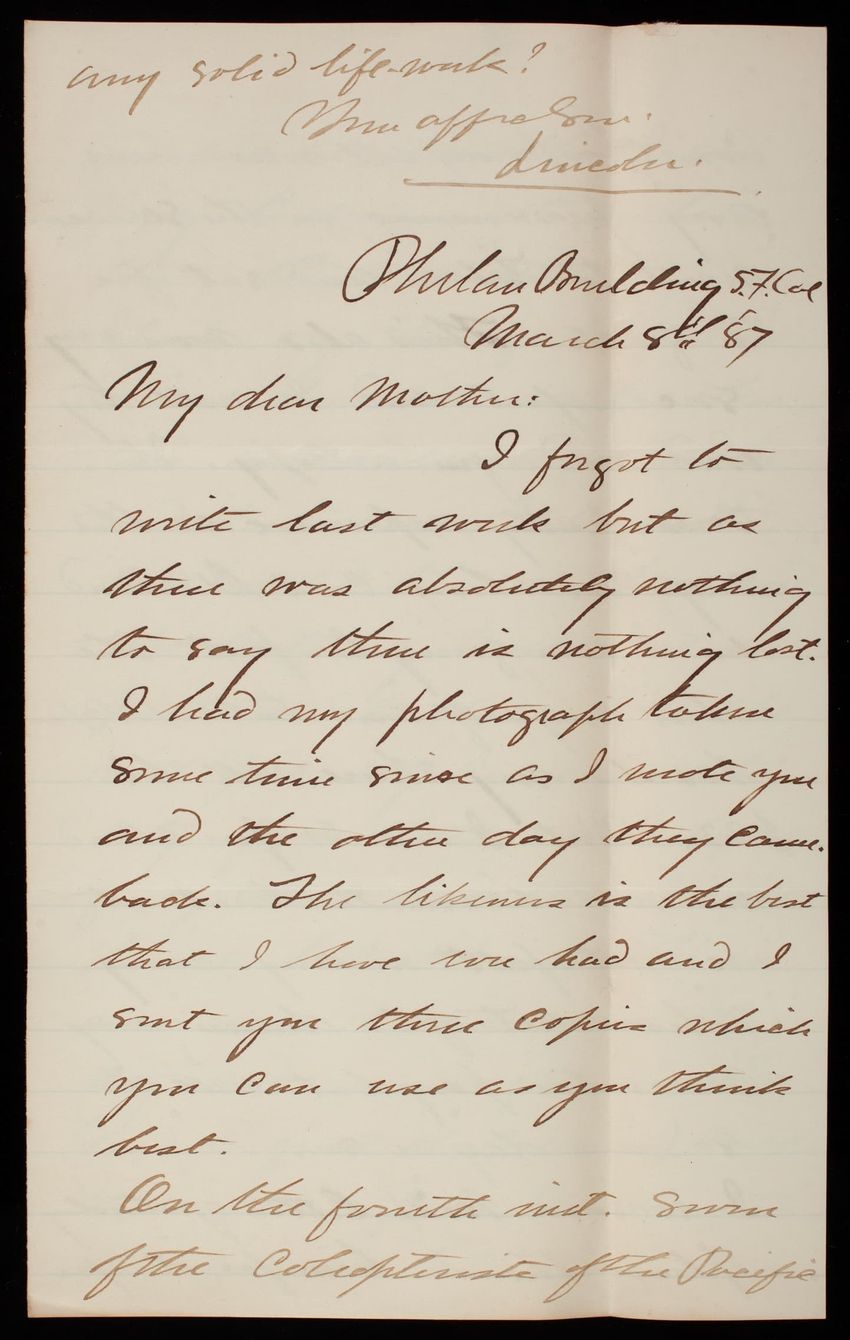 any solid life-work?
Your affec Son.
Lincoln.
Phelan Building S.F. Cal
March 8th '87
My dear Mother:
I forgot to
write last week but as
there was absolutely nothing
to say there is nothing lost.
I had my photograph taken
some time since as I wrote you
and the other day they came
back. The likeness is the best
that I have ever had and I
sent you three copies which
you can use as you think
best.
On the fourth inst. seven
of the Coleopterists of the Pacific